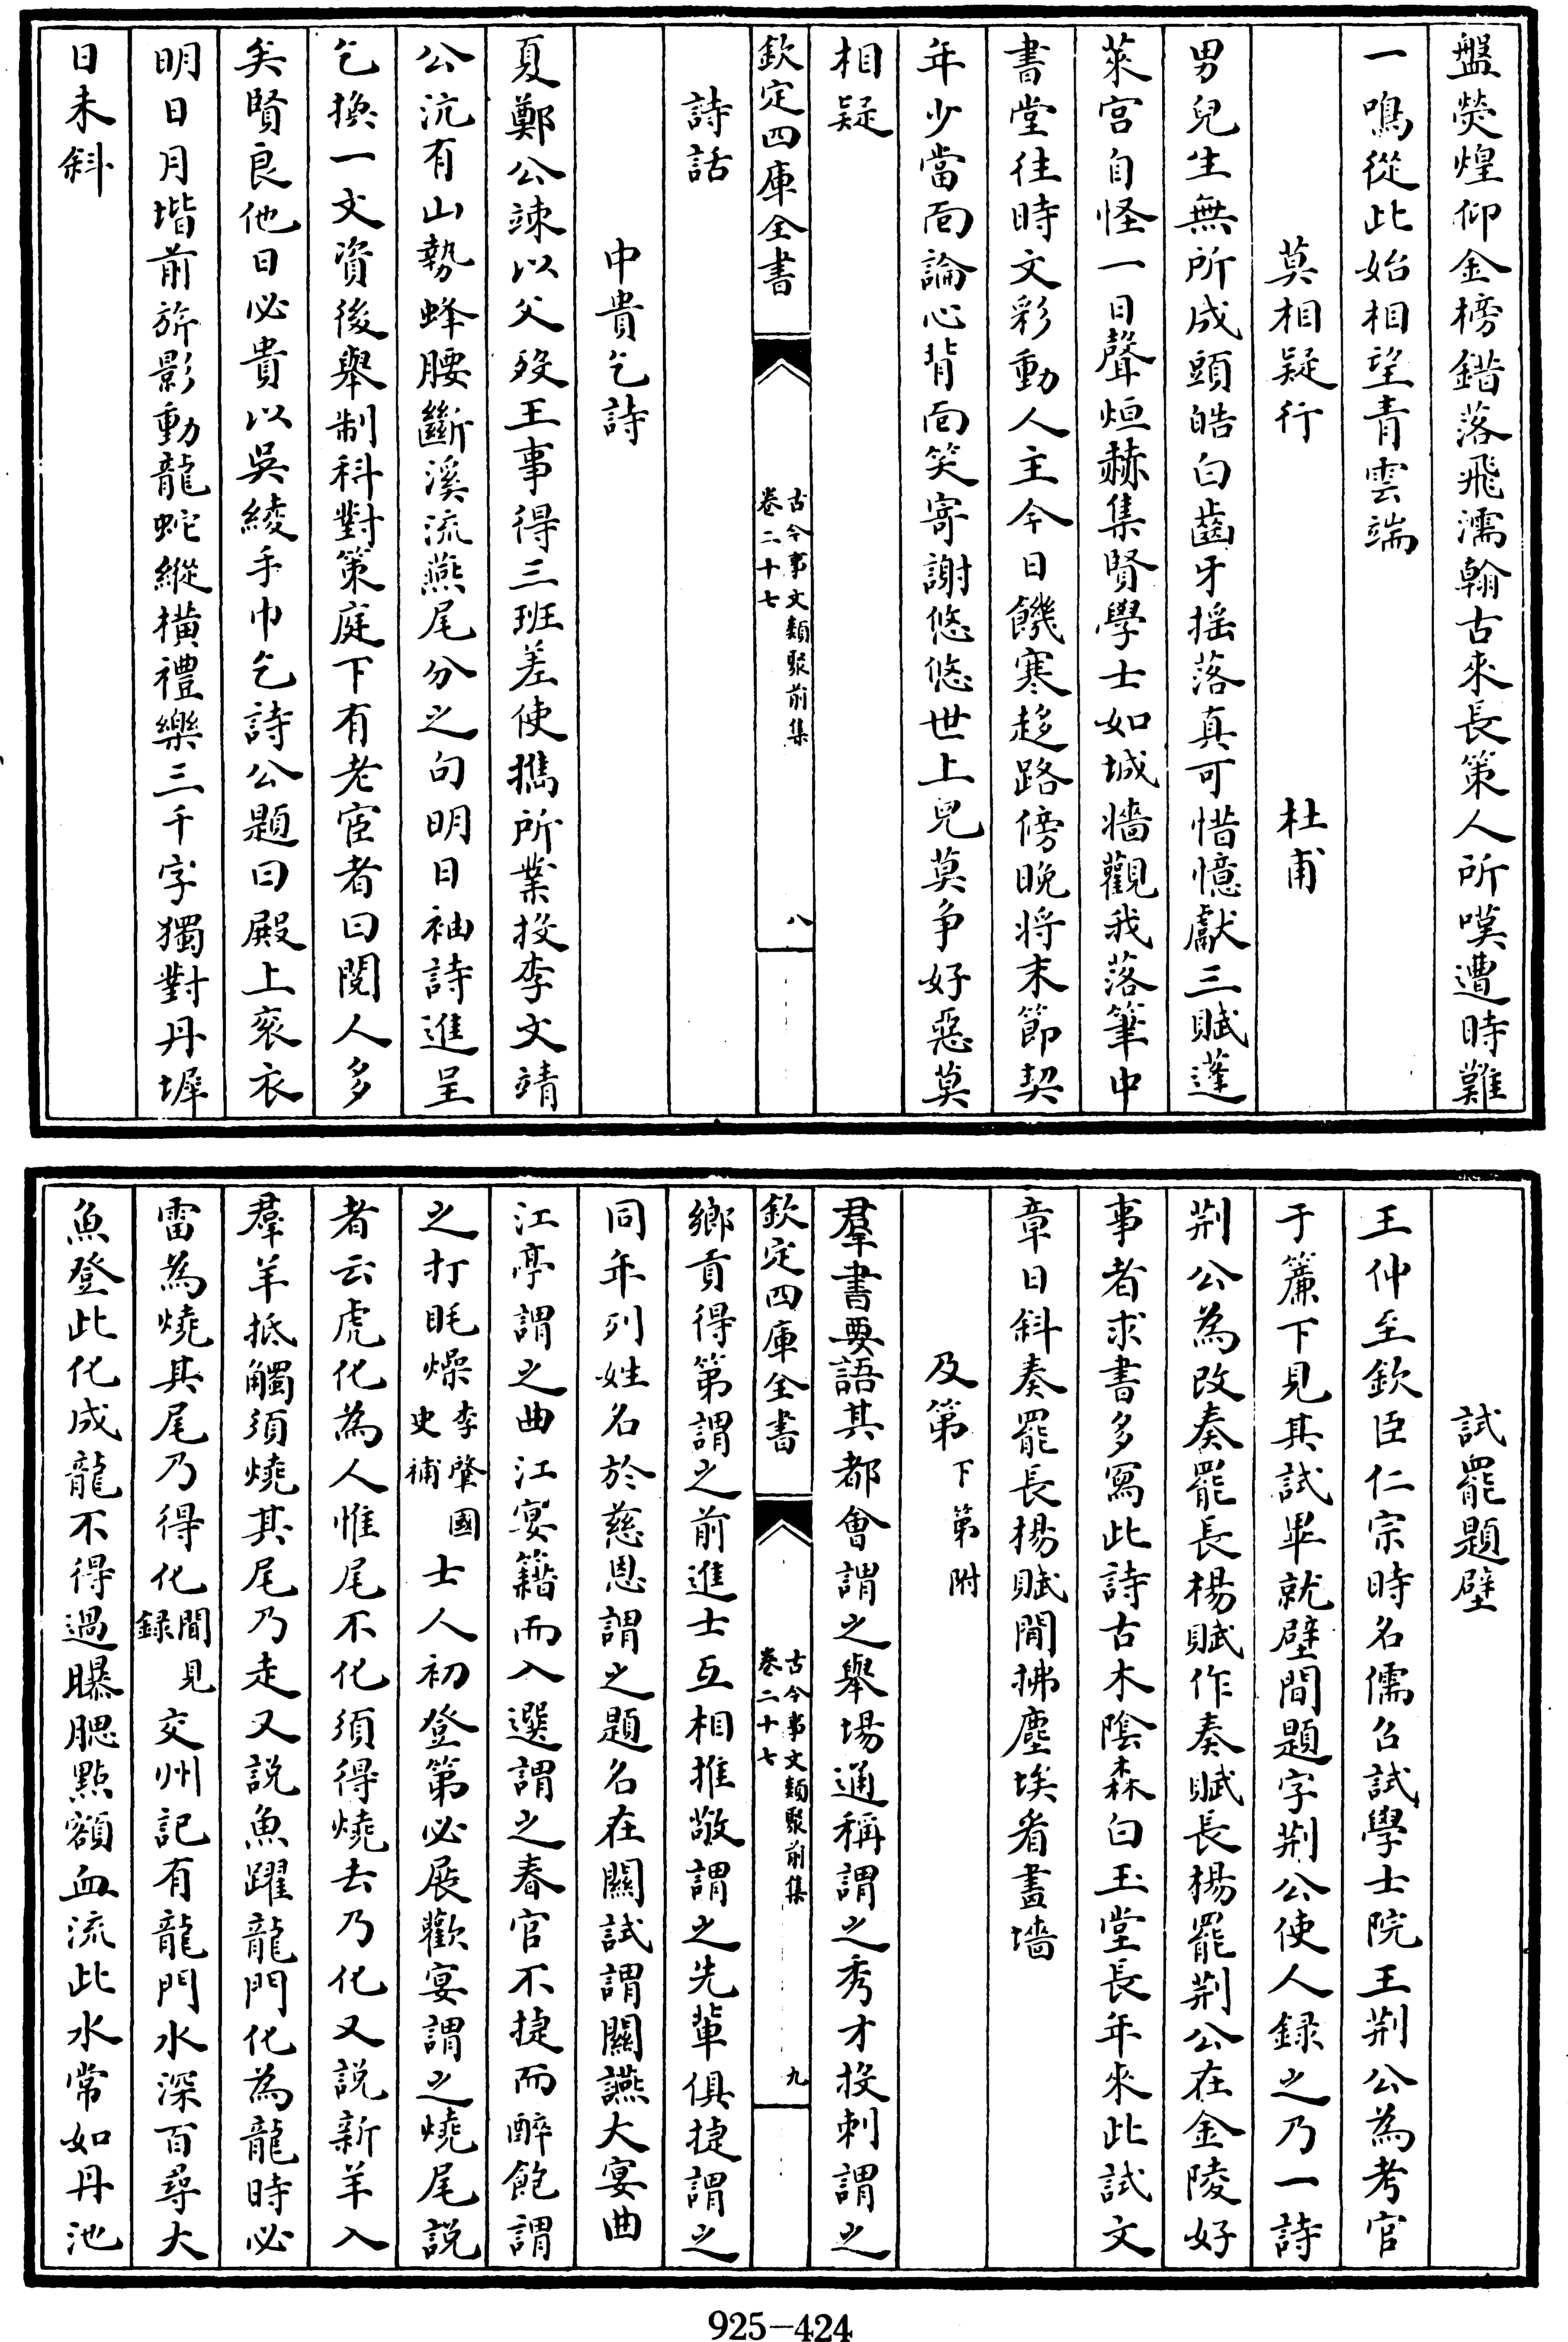 盤熒煌仰金榜錯落飛濡翰古來長策人所嘆遭時難
一鳴從此始相望青雲端
莫相疑行 杜甫
男兒生無所成頭皓白齒牙揺落真可惜憶獻三賦蓬
萊宫自怪一日聲烜赫集賢學士如城牆觀我落筆中
書堂往時文彩動人主今日饑寒趍路傍晚将末節契
年少當面論心背面笑寄謝悠悠世上兒莫争好惡莫
相疑
欽定四庫全書 古今事文類聚前集 卷二十七 八
詩話
中貴乞詩
夏鄭公竦以父殁王事得三班差使攜所業投李文靖
公沆有山勢蜂腰斷溪流燕尾分之句明日袖詩進呈
乞換一文資後舉制科對策庭下有老宦者曰閱人多
矣賢良他日必貴以吳綾手巾乞詩公題曰殿上衮衣
明日月堦前旂影動龍蛇縱横禮樂三千字獨對丹墀
日未斜
試罷題壁
王仲至欽臣仁宗時名儒召試學士院王荆公為考官
于簾下見其試畢就壁間題字荆公使人録之乃一詩
荆公為改奏罷長楊賦作奏賦長楊罷荆公在金陵好
事者求書多寫此詩古木陰森白玉堂長年來此試文
章日斜奏罷長楊賦閒拂塵埃看畫墻
及第 下第附
羣書要語其都㑹謂之舉場通稱謂之秀才投刺謂之
鄉貢得第謂之前進士互相推敬謂之先輩俱捷謂之
欽定四庫全書 古今事文類聚前集 卷二十七 九
同年列姓名於慈恩謂之題名在關試謂關讌大宴曲
江亭謂之曲江宴籍而入選謂之春官不捷而醉飽謂
之打毷燥李肇國史補士人初登第必展歡宴謂之燒尾説
者云虎化為人惟尾不化須得燒去乃化又説新羊入
羣羊抵觸須燒其尾乃走又説魚躍龍門化為龍時必
雷為燒其尾乃得化聞見録交州記有龍門水深百尋大
魚登此化成龍不得過曝腮點額血流此水常如丹池
925-424